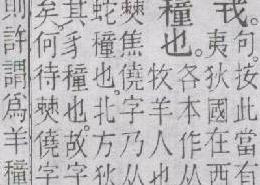 戎。句。按此當有
夷狄國在西
穜也。各本作从
牧羊人也
僰焦僥字乃从
蛇穜也。北方狄
其豸穜也。故字
矣。何待僰僥字
則許謂爲羊穜